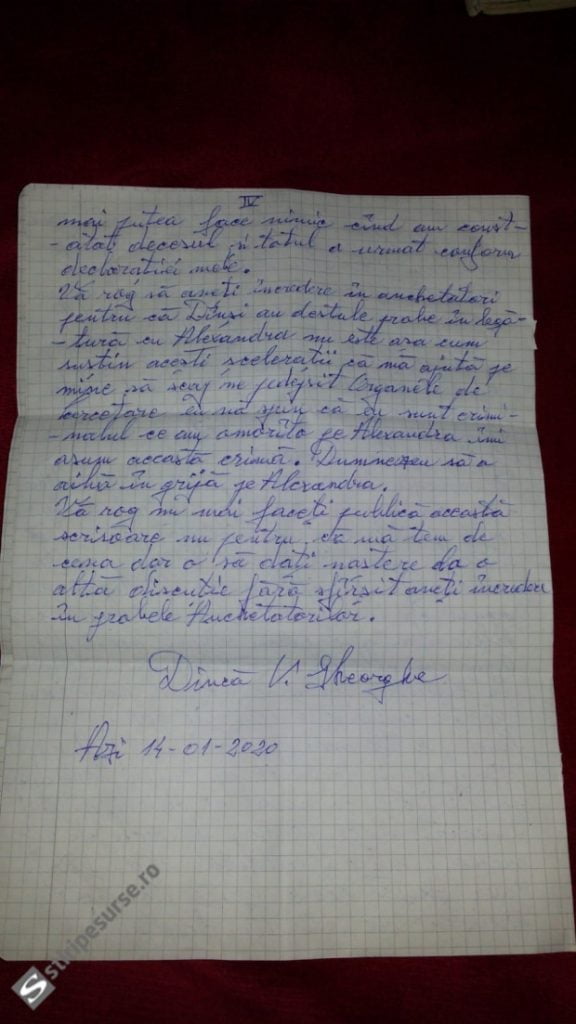 IV
mai putea face nimic cînd am const-
-atat decesul și totul a urmat conform
declaratiei mele.
Vă rog să aveți încredere în anchetatori
pentru că Dînși au destule probe în legă-
-tură cu Alexandra nu este asa cum
sustin acesti sceleratii că mă ajută pe
mine să scap ne pedepsit Organele de
cercetare eu vă spun că eu sunt crimi-
-nalul ce am omorîto pe Alexandra îmi
asum această crimă. Dumnezeu să o
aibă în grijă pe Alexandra.
Vă rog nu mai faceti publică această
scrisoare nu pentru ca mă tem de
ceva dar o să dați nastere la o
altă discutie fără sfîrsit aveți încredere
în probele Anchetatorilor.
Dincă V. Gheorghe
Azi 14-01-2020
S stripesurse.ro